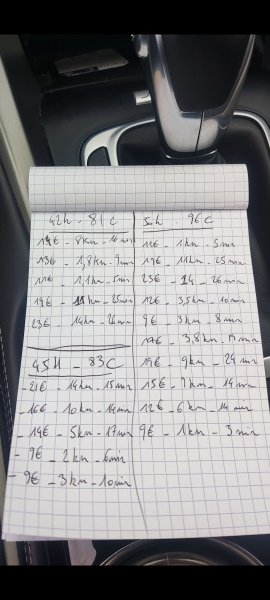 42h - 81€
14€ - 8km - 16min
13€ - 1,8km - 9min
11€ - 1,1km - 5min
19€ - 11km - 25min
23€ - 14km - 26min
45h - 83€
- 21€ - 14km - 15min
- 16€ - 10km - 14min
- 14€ - 5km - 17min
- 9€ - 2km - 6min
- 9€ - 3km - 10min
5h - 96€
11€ - 1km - 5min
19€ - 11km - 25min
23€ - 14 - 26min
12€ - 3,5km - 10min
9€ - 3km - 8min
3,8km - 17min
19€ - 9km - 24min
15€ - 7km - 14min
12€ - 6km - 14min
9€ - 1km - 3min